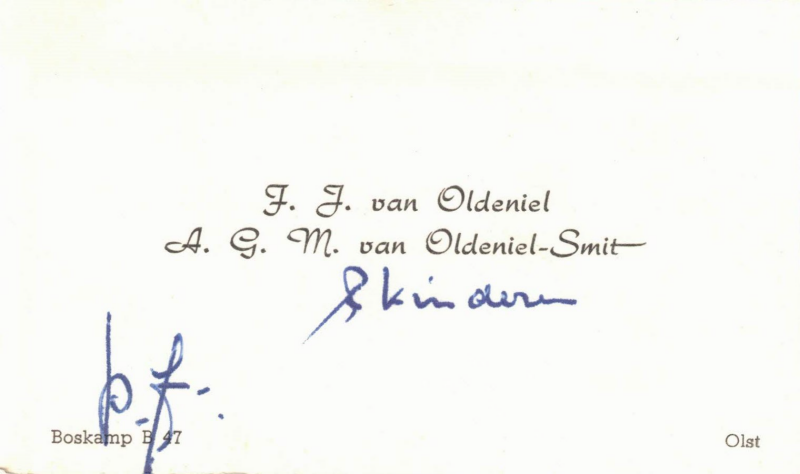 F. J. van Oldeniel
A. G. M. van Oldeniel-Smit
& kinderen
p.f.
Boskamp B 47
Olst